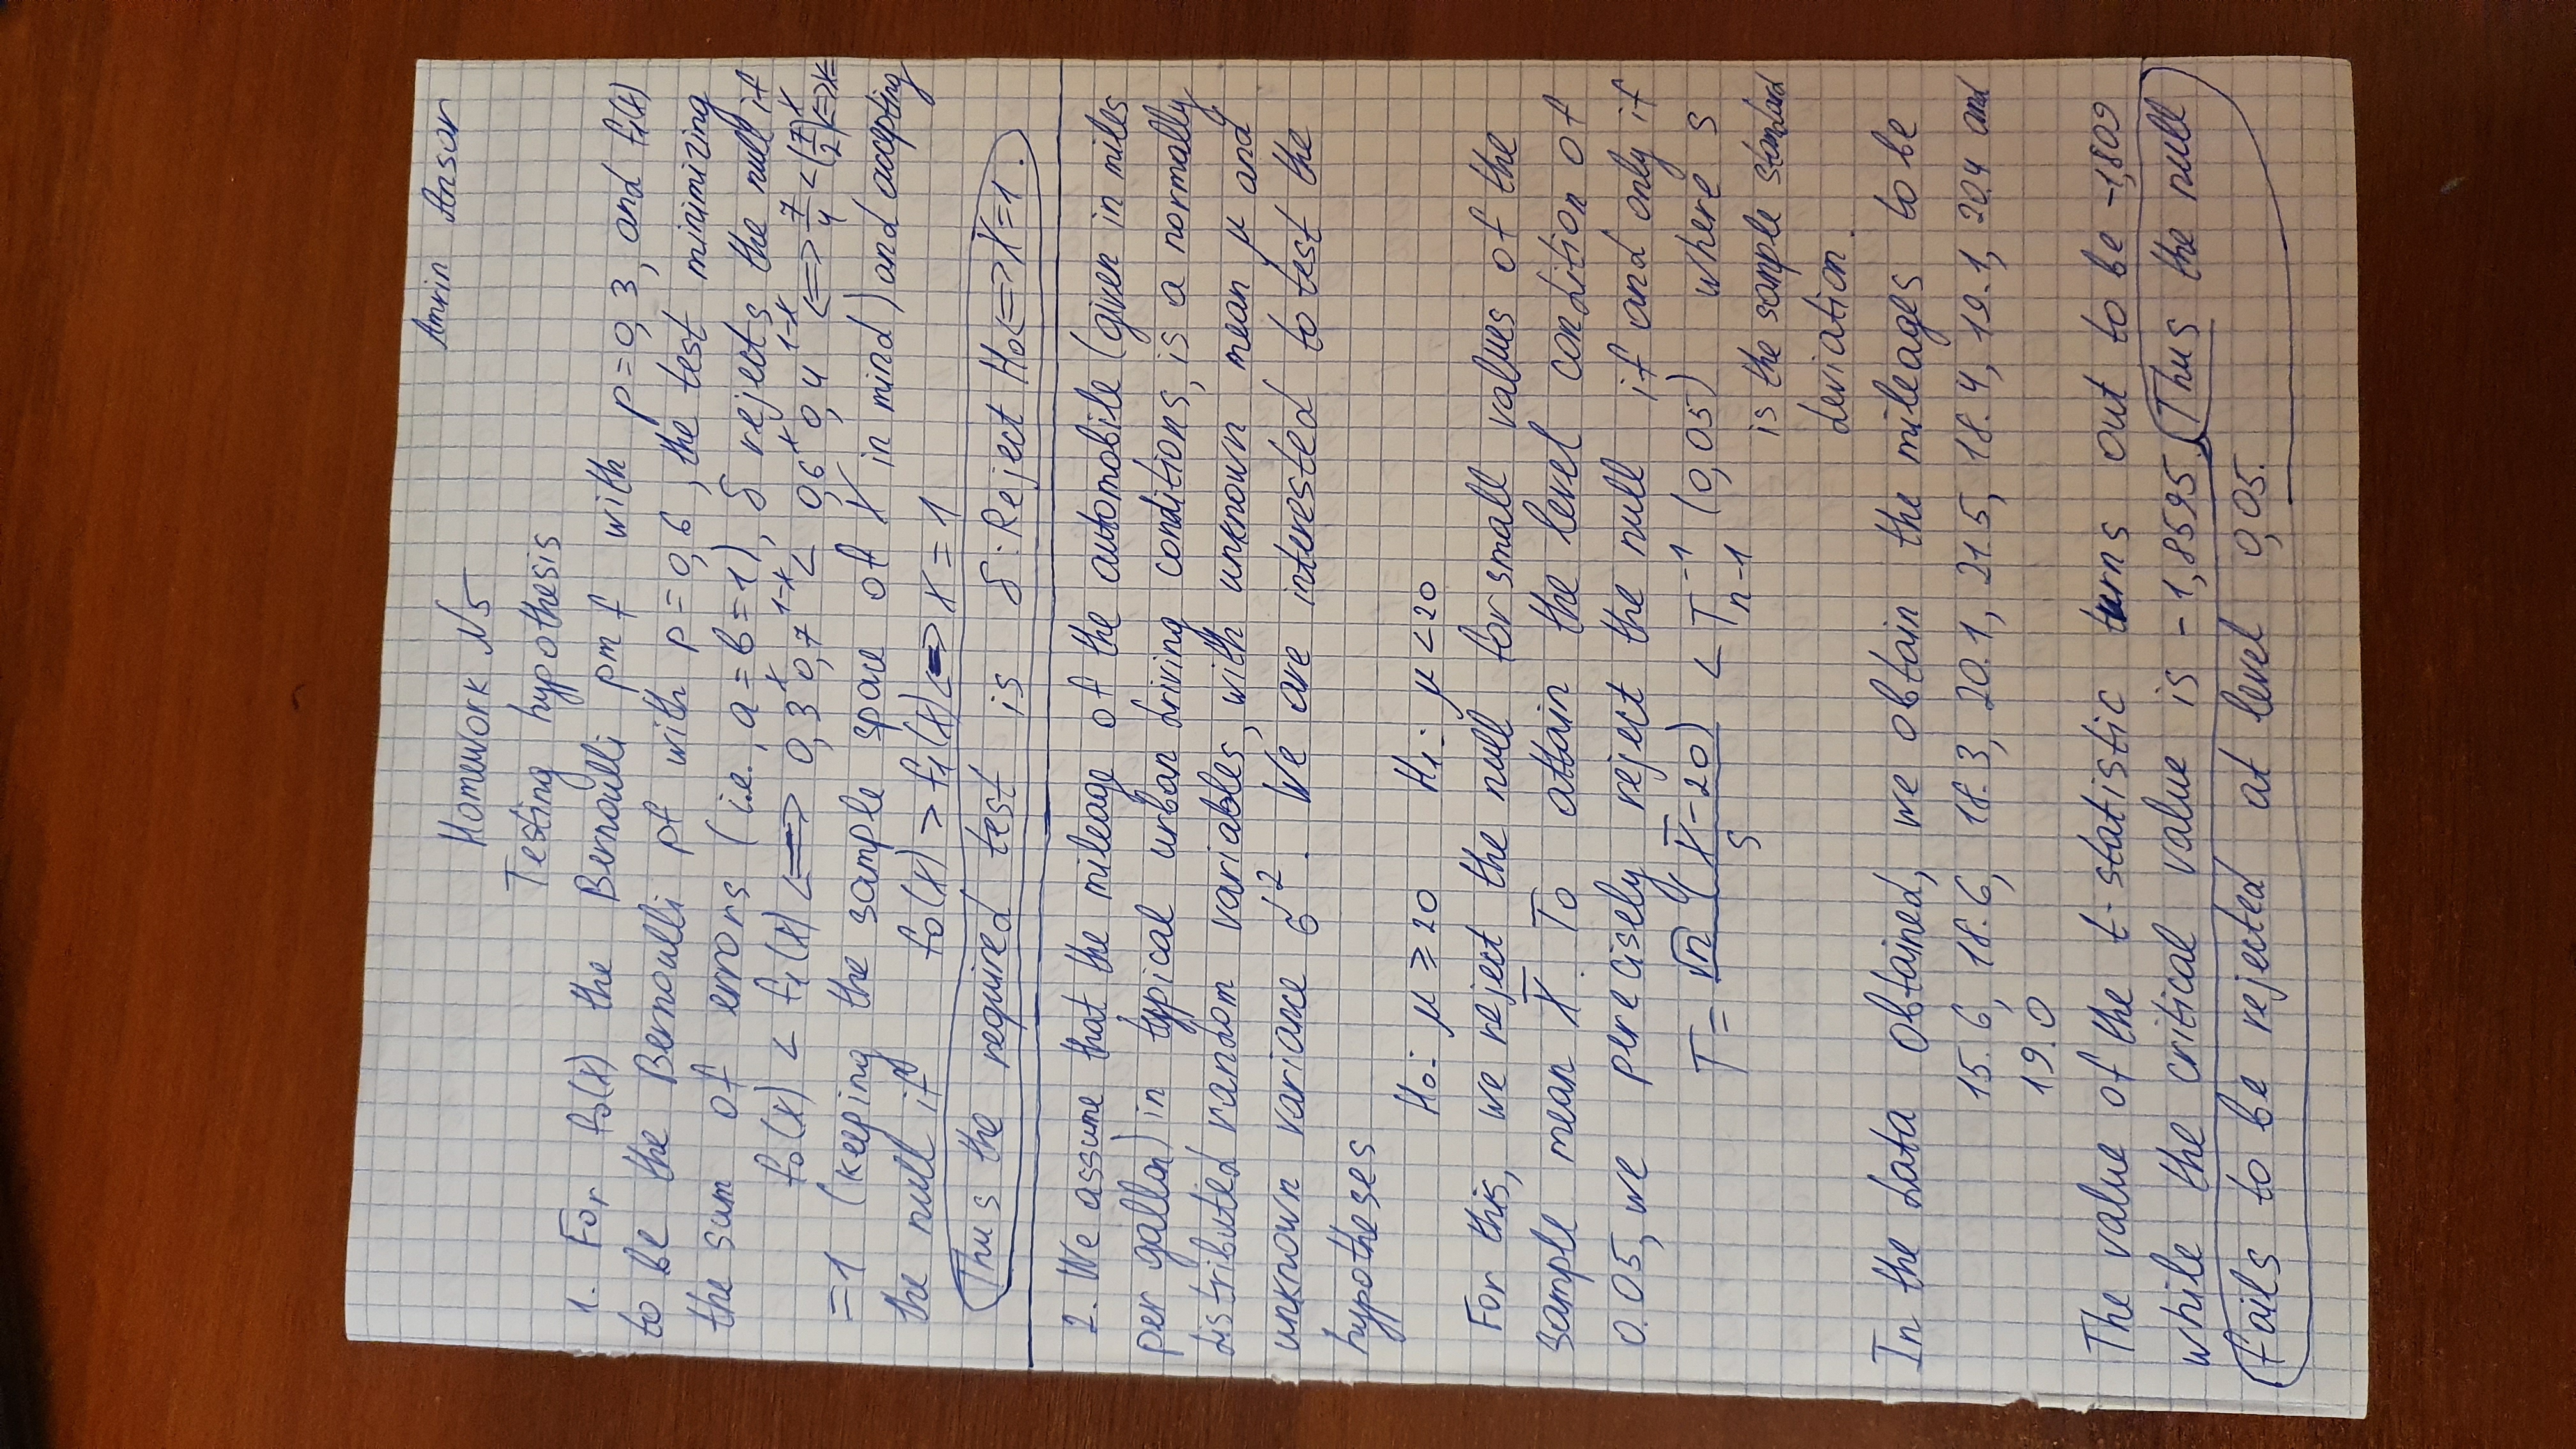 Amrin Ansar
Homework N5
Testing hypothesis
1. For f₀(X) the Bernoulli pmf with p=0,3, and f₁(X)
to be the Bernoulli pf with p=0,6, the test minimizing
the sum of errors (i.e., a=b=1), δ rejects the null if
f₀(X) < f₁(X) <=> 0,3ˣ 0,7¹⁻ˣ < 0,6ˣ 0,4¹⁻ˣ <=> 7/4 < (7/2)ˣ <=> x=
=1 (keeping the sample space of X in mind) and accepting
the null if f₀(X) > f₁(X) <=> X = 1
Thus the required test is δ: Reject H₀ <=> X=1.
2. We assume that the mileage of the automobile (given in miles
per gallon) in typical urban driving conditions, is a normally
distributed random variables, with unknown mean μ and
unknown variance σ². We are interested to test the
hypotheses
H₀: μ ≥ 20 H₁: μ < 20
For this, we reject the null for small values of the
sample mean X̄. To attain the level condition of
0.05, we perecisely reject the null if and only if
T = √n (X̄-20) / s < T⁻¹ₙ₋₁ (0,05) where s
is the sample standard
deviation.
In the data obtained, we obtain the mileages to be
15.6, 18.6, 18.3, 20.1, 21.5, 18.4, 19.1, 20.4 and
19.0
The value of the t-statistic turns out to be -1,809
while the critical value is -1,8595. Thus the null
fails to be rejected at level 0,05.